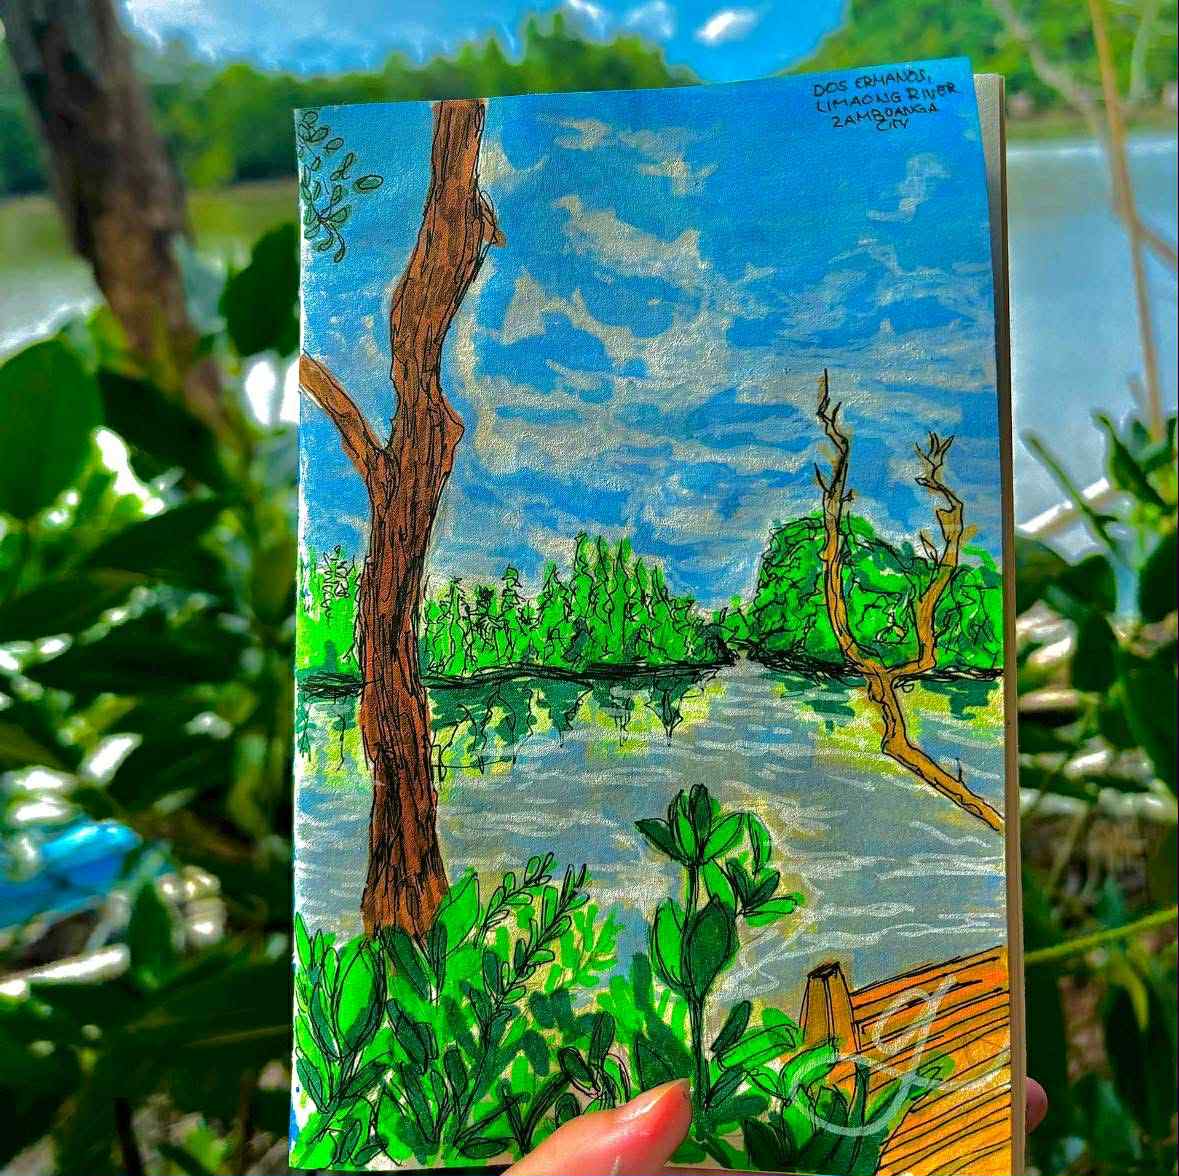 DOS ERMANOS,
LIMAONG RIVER
ZAMBOANGA
CITY
g